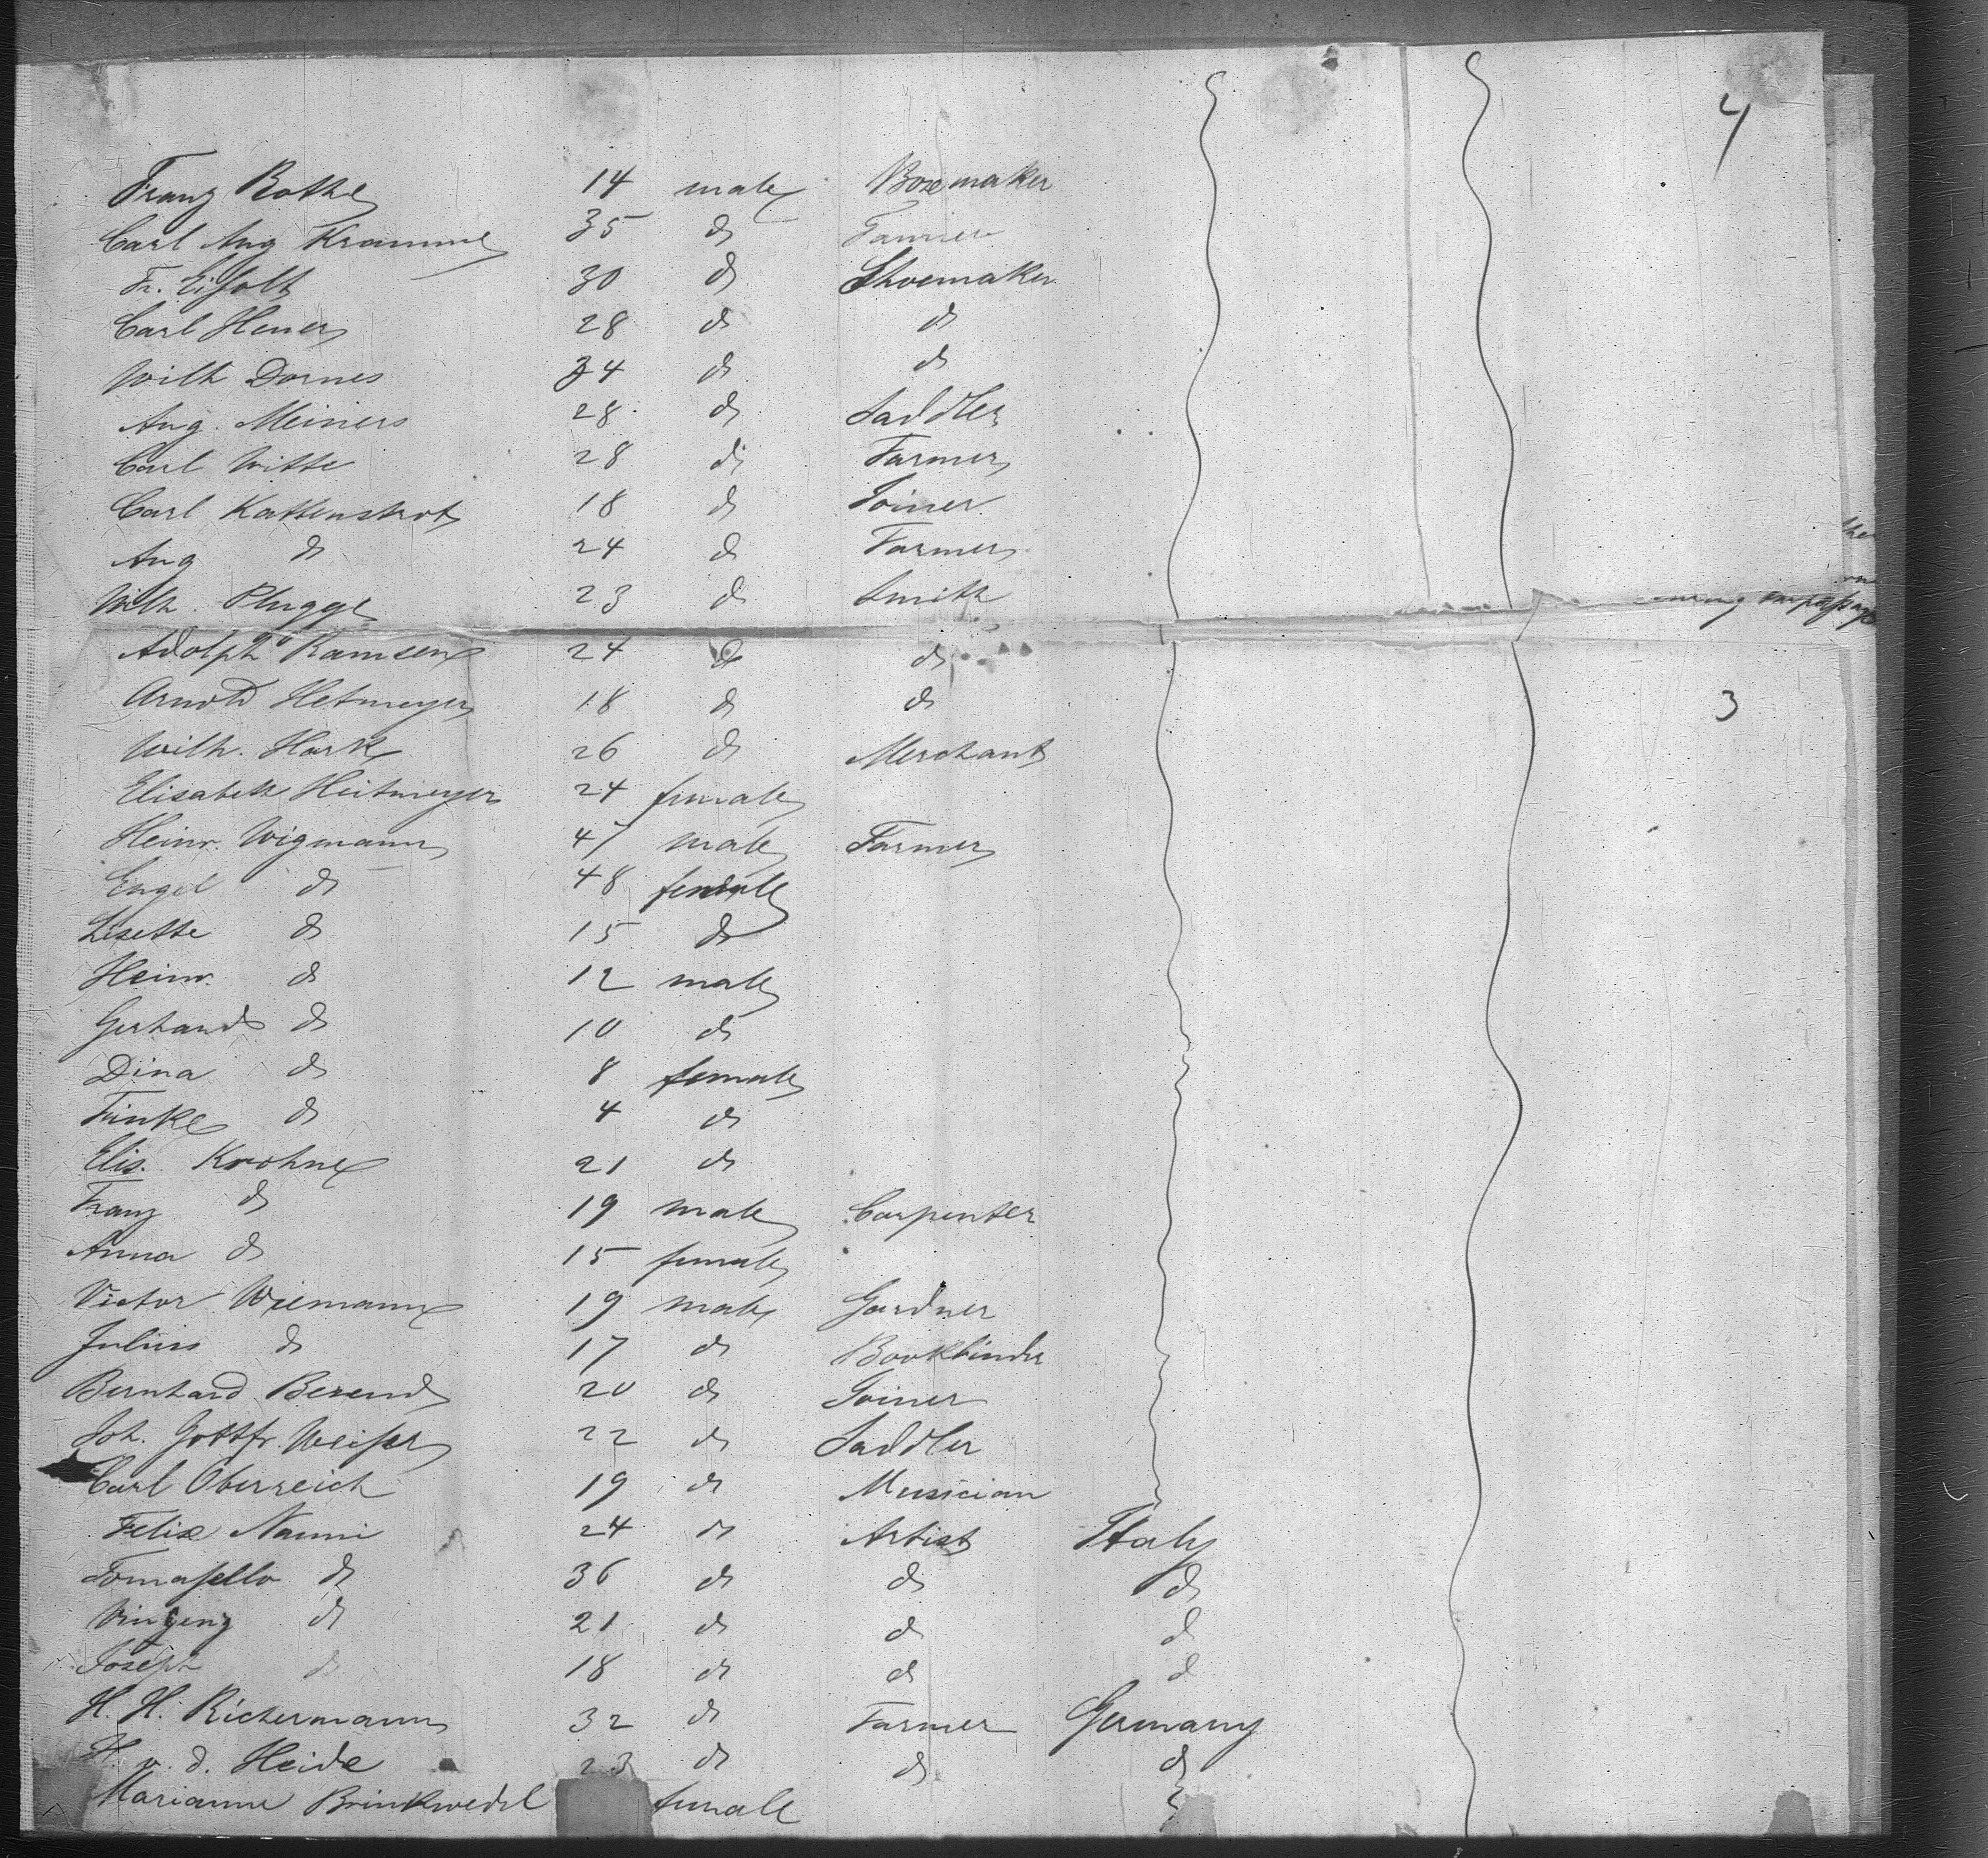 4
Franz Rothe 14 male Boxmaker
Carl Aug Kramme 35 d Tanner
Fr. Eisolt 30 d Shoemaker
Carl Heuer 28 d d
Wilh Dornes 34 d d
Aug. Meiners 28 d Saddler
Carl Witte 28 d Farmer
Carl Kattenstrot 18 d Joiner
Aug d 24 d Farmer
Wilh. Plugge 23 d Smith
Adolph Ramsen 24 d d
Arnold Hetmeyer 18 d d 3
Wilh. Hark 26 d Merchant
Elisabeth Heitmeyer 24 female
Heinr. Wigmann 47 male Farmer
Engel d 48 female
Lisette d 15 d
Heinr. d 12 male
Gerhard d 10 d
Dina d 8 female
Trinke d 4 d
Elis. Krohne 21 d
Franz d 19 male Carpenter
Anna d 15 female
Victor Wiemann 19 male Gardner
Julius d 17 d Bookbinder
Bernhard Berend 20 d Joiner
Joh. Gottfr. Weisser 22 d Saddler
Carl Oberreich 19 d Musician
Felix Nanni 24 d Artist Italy
Tomasello d 36 d d d
Vingeng d 21 d d d
Joseph d 18 d d d
H. H. Richermann 32 d Farmer Germany
H. v. d. Heide 23 d d d
Marianne Brinkwedel female